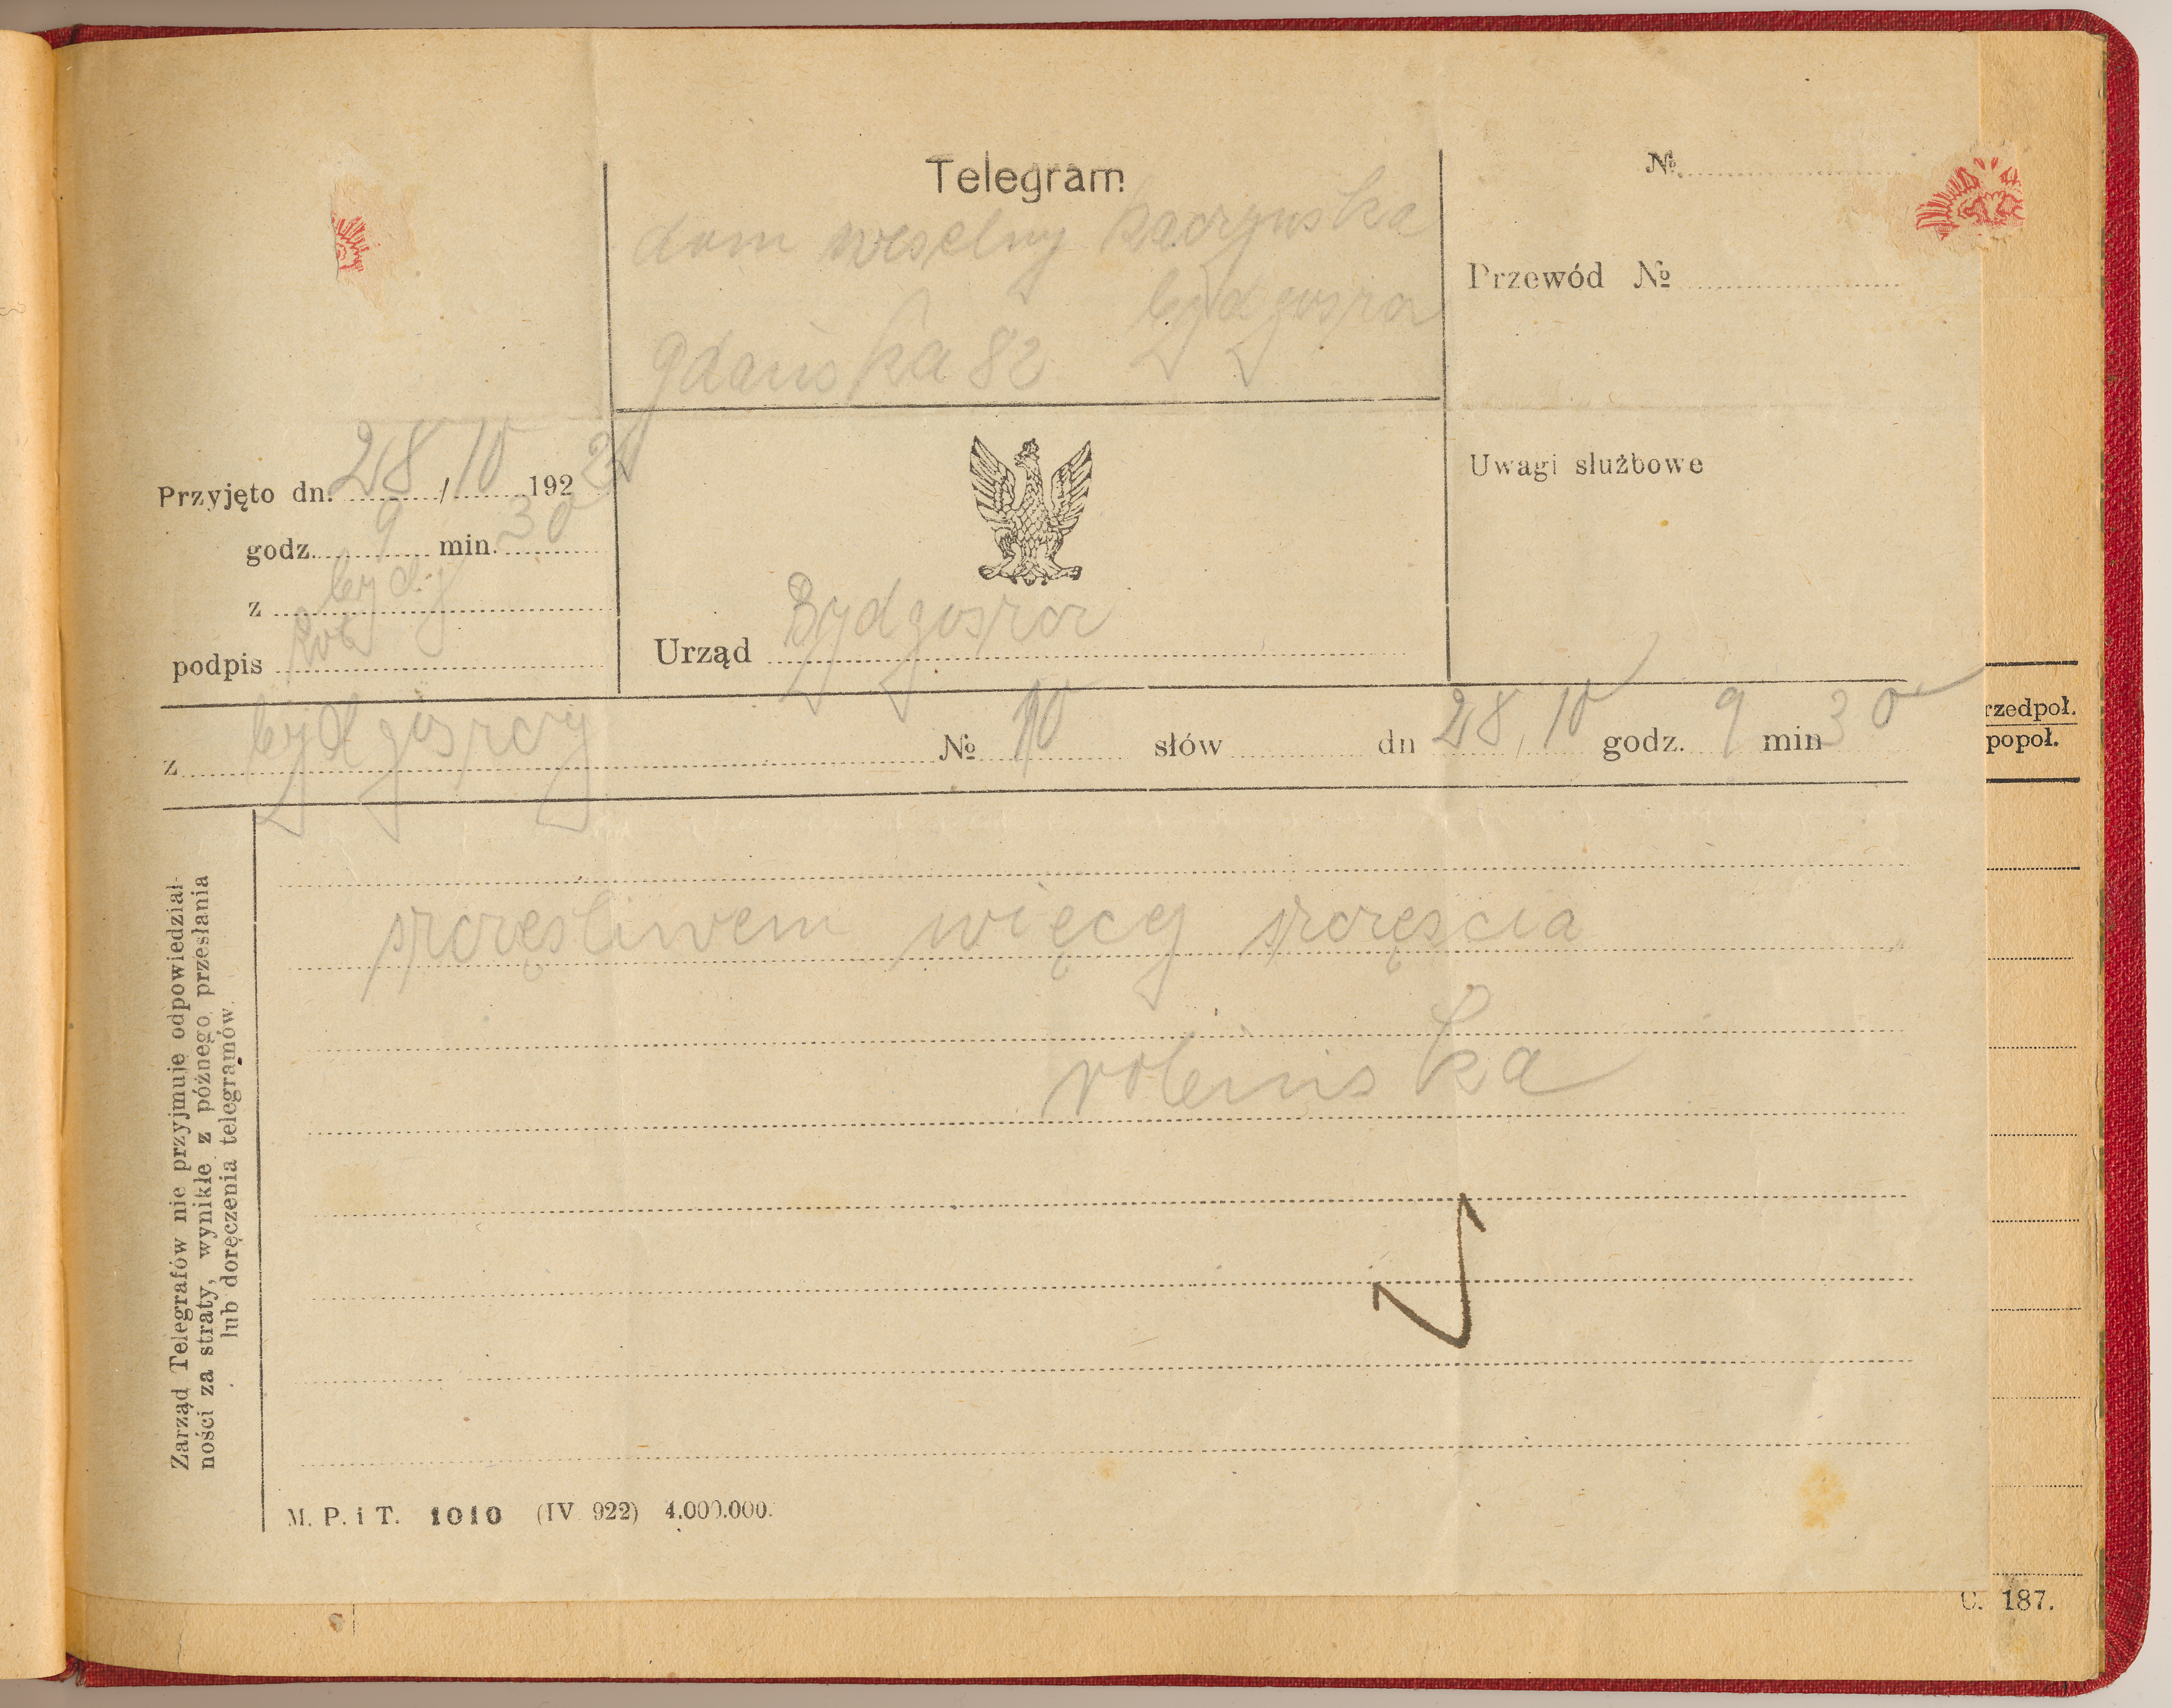 Telegram
dom weselny kaczynska
bydgoszcz
gdańska 82
№
Przewód №
Przyjęto dn. 28 / 10 192
godz. 9 min. 30
z bydg
podpis
Urząd Bydgoszcz
Uwagi służbowe
z bydgoszczy № 10 słów dn 28 / 10 godz. 9 min 30
rzedpoł.
popoł.
szczęśliwem więcej szczęścia
Zarząd Telegrafów nie przyjmuje odpowiedzial-
ności za straty, wynikłe z późnego przesłania
lub doręczenia telegramów.
M. P. i T. 1010 (IV 922) 4.000.000.
C. 187.